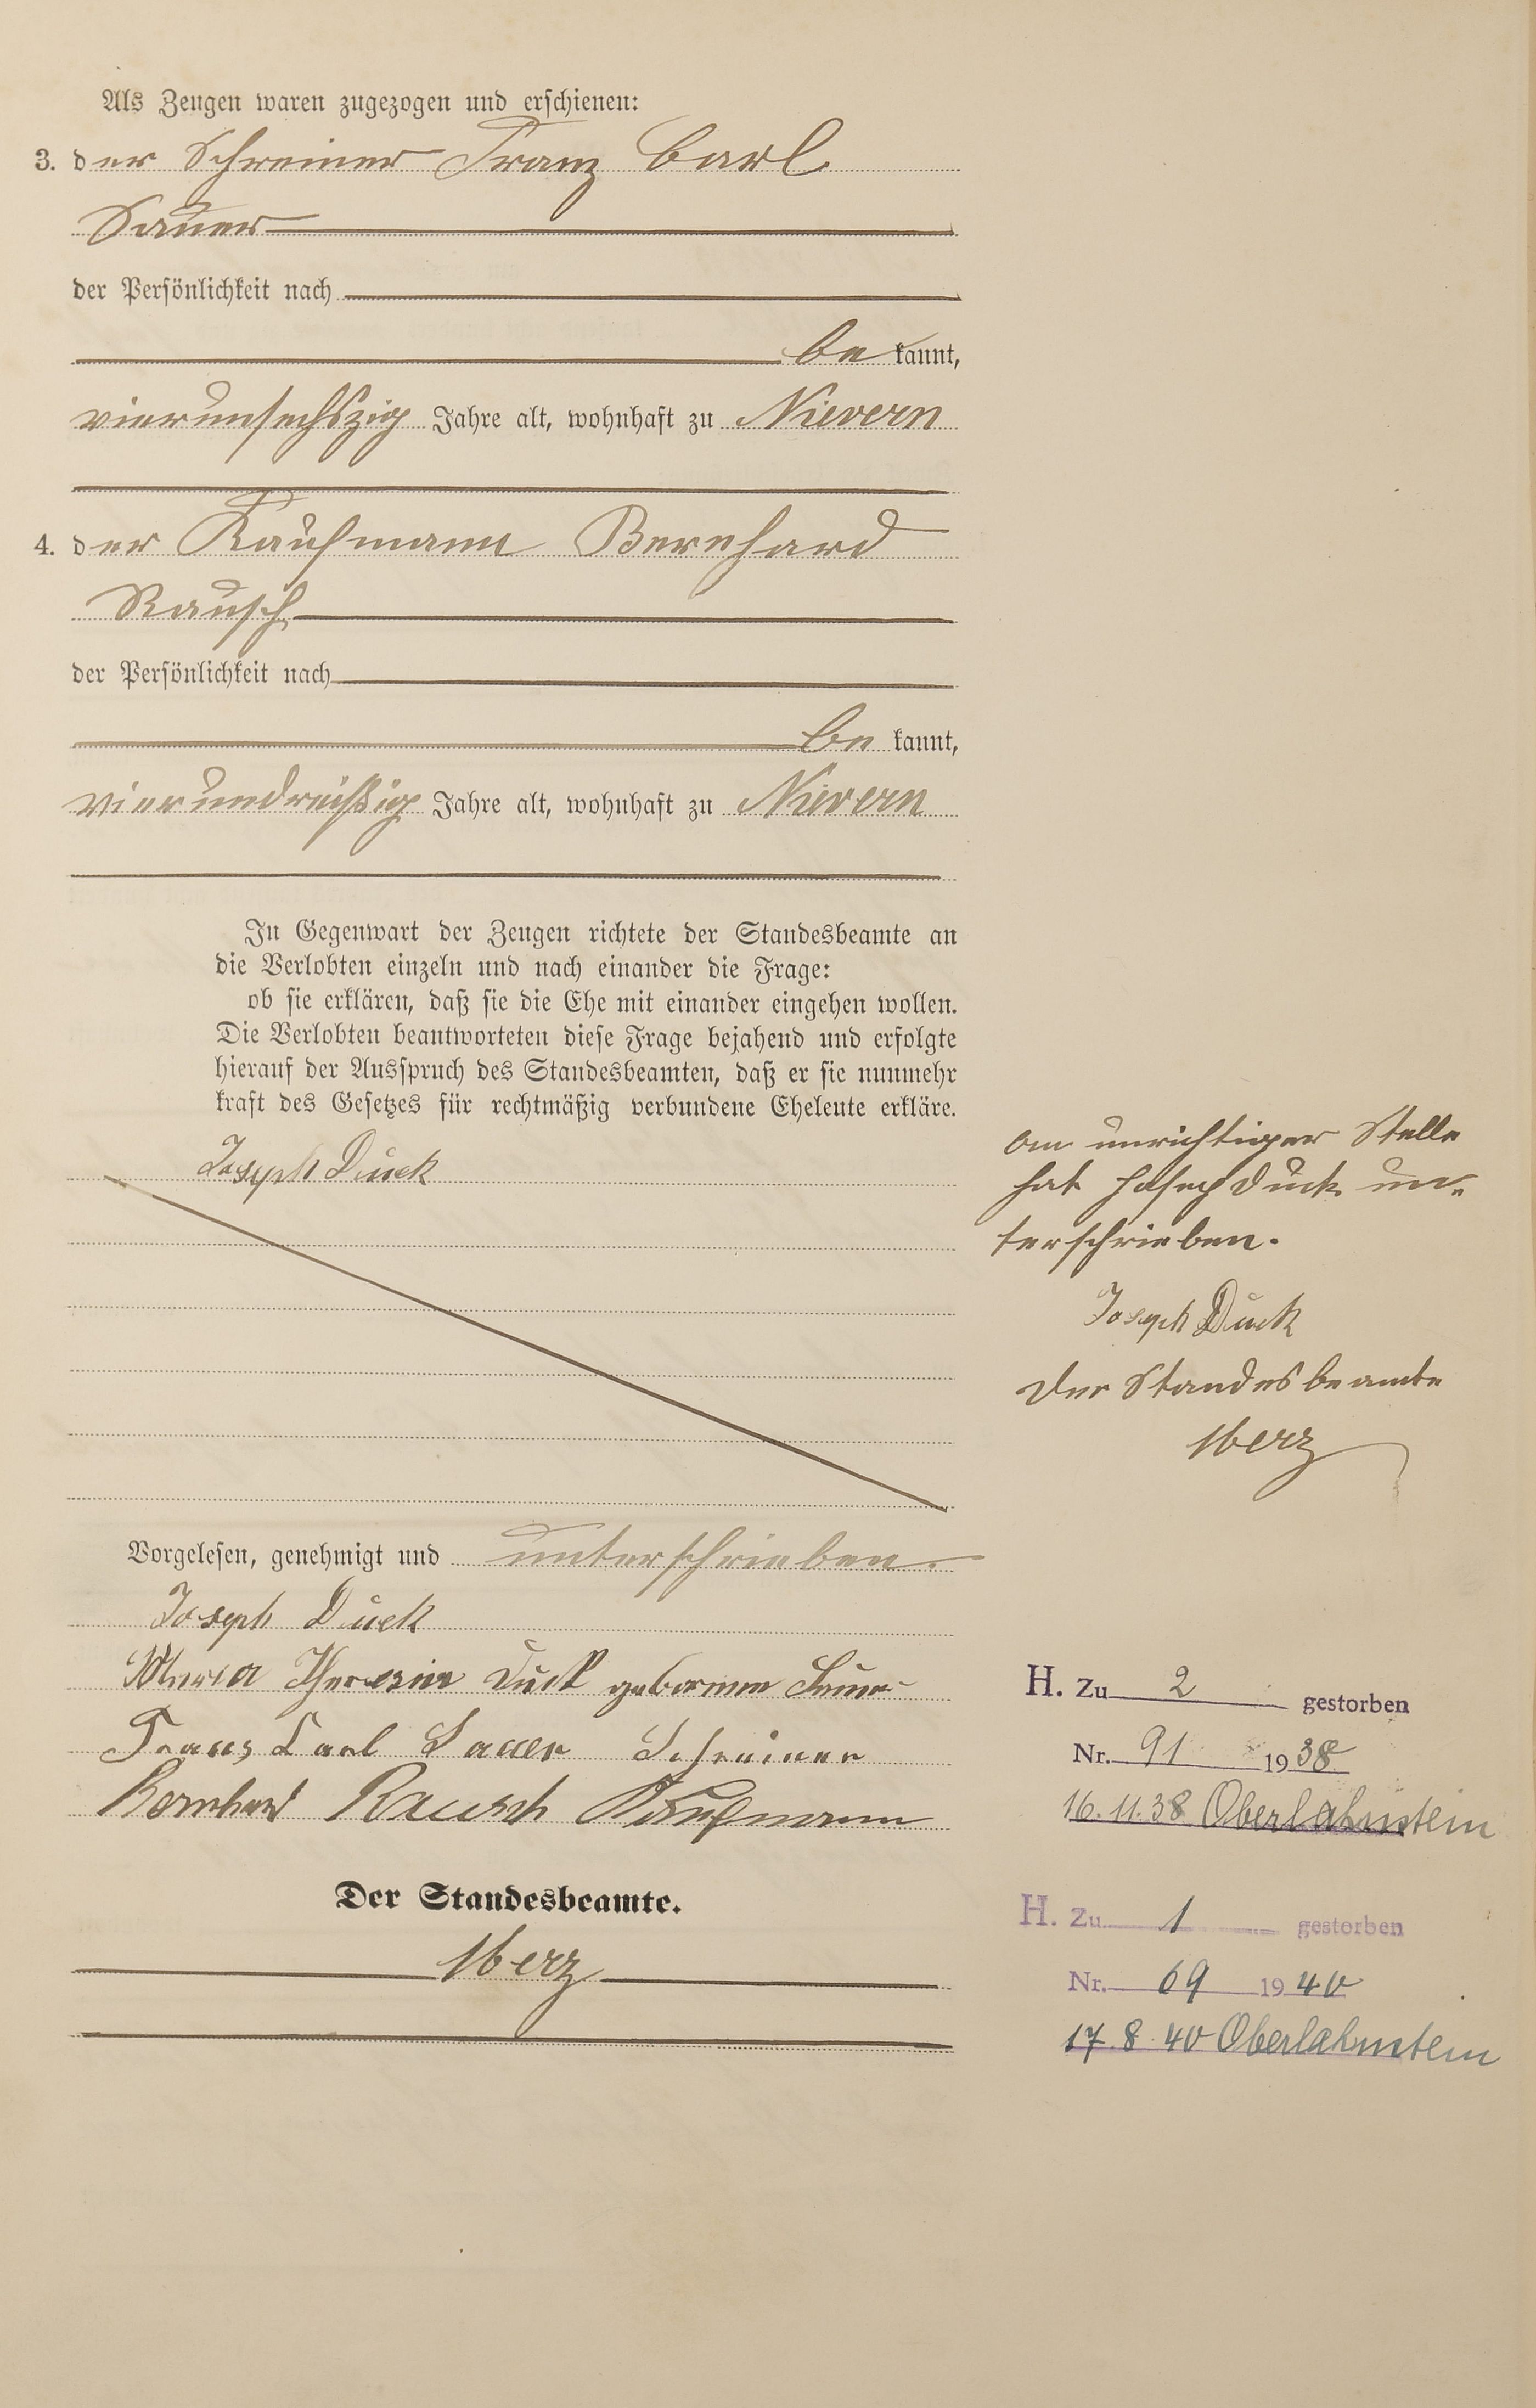 Als Zeugen waren zugezogen und erschienen:
3. der Schreiner Franz Carl
Sauer
der Persönlichkeit nach
be kannt,
vierunsechszig Jahre alt, wohnhaft zu Nievern
4. der Kaufmann Bernhard
Rausch
der Persönlichkeit nach
be kannt,
vierunddreißig Jahre alt, wohnhaft zu Nievern
In Gegenwart der Zeugen richtete der Standesbeamte an
die Verlobten einzeln und nach einander die Frage:
ob sie erklären, daß sie die Ehe mit einander eingehen wollen.
Die Verlobten beantworteten diese Frage bejahend und erfolgte
hierauf der Ausspruch des Standesbeamten, daß er sie nunmehr
kraft des Gesetzes für rechtmäßig verbundene Eheleute erkläre.
Joseph Duck
An unrichtiger Stelle
hat Joseph Duck un-
terschrieben.
Joseph Duck
Der Standesbeamte
Vorgelesen, genehmigt und unterschrieben.
Joseph Duck
Maria Theresia Duck geborene Sauer
Franz Carl Sauer Schreiner
Bernhard Rausch Kaufmann
Der Standesbeamte.
H. Zu 2 gestorben
Nr. 91 1938
16.11.38 Oberlahnstein
H. Zu 1 gestorben
Nr. 69 1940
17.8.40 Oberlahnstein